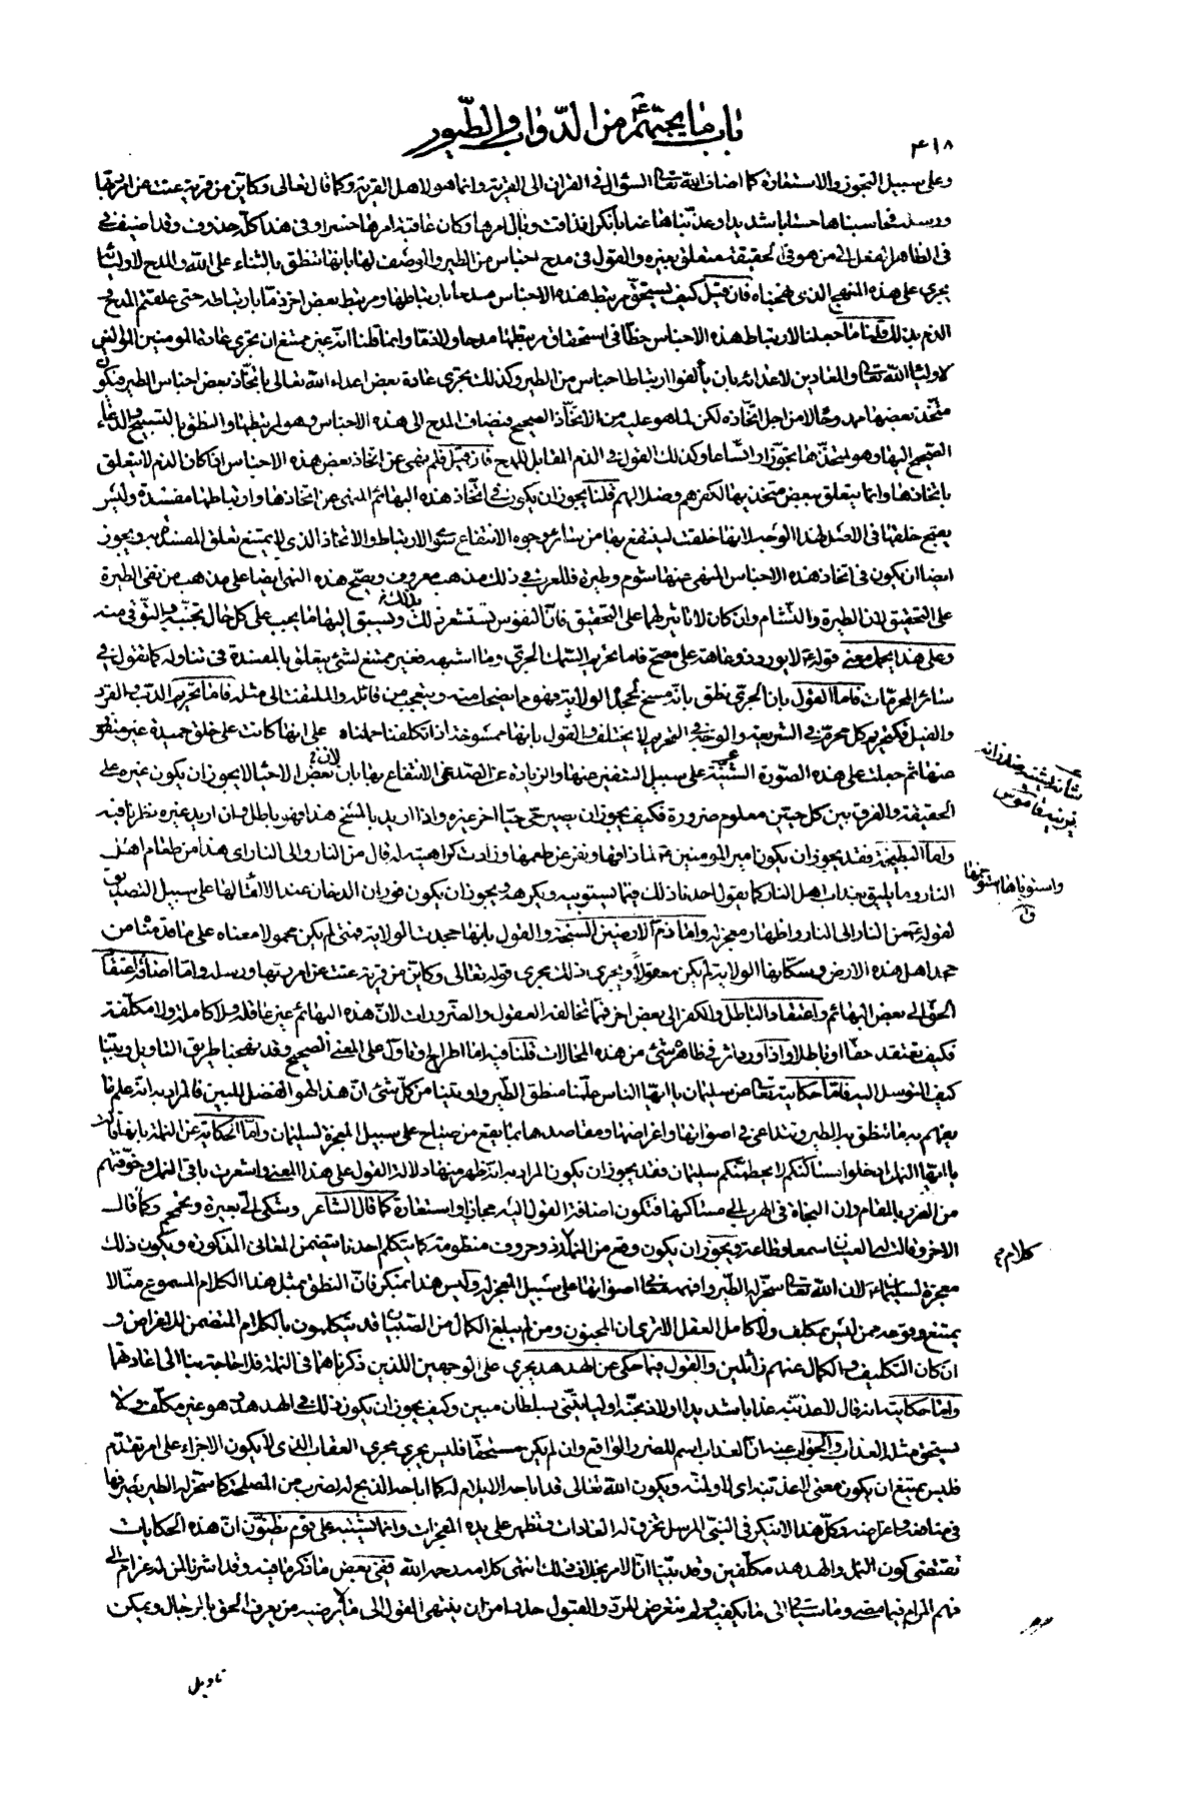 باب ما يجتمع من الدّواب والطّيور
٤١٨
وعلى سبيل التجوز والاستعارة كما اضاف الله تعالى السؤال في القران الى القرية وانما هو لاهل القرية وكما قال تعالى وكاين من قرية عتت عن امر ربها
ورسله فحاسبناها حسابا شديدا وعذبناها عذابا نكرا فذاقت وبال امرها وكان عاقبة امرها خسرا وفى هذا كله حذوف وقد اضيف في
فى الظاهر الفعل الى من هو في الحقيقة متعلق بغيره والقول في مدح اجناس من الطير والوصف لها بانها تنطق بالثناء على الله والمدح لاوليائه
يجرى على هذا المنهج الذى نهجناه فان قيل كيف يستحق مرتبط هذه الاجناس مدحا بارتباطها ومرتبط بعض اخر ذمّا بارتباطه حتى علقتم المدح و
الذم بذلك قلنا ما جعلنا لارتباط هذه الاجناس حظّا في استحقاق مرتبطها مدحا ولا ذمّا وانما قلنا انه غير ممتنع ان تجرى عادة المومنين الموالين
لاولياء الله تعالى والمعادين لاعدائه بان يألفوا ارتباط اجناس من الطير وكذلك يجرى عادة بعض اعداء الله تعالى باتخاذ بعض اجناس الطير فيكون
متّخذ بعضها ممدوحا لا من اجل اتخاذه لكن لما هو عليه من الاتخاذ الصحيح فيضاف المدح الى هذه الاجناس وهو لمرتبطها والنطق بالتسبيح والدعاء
الصحيح اليها وهو لمتخذها تجوزا واتساعا وكذلك القول في الذم المقابل للمدح فان قيل فلم نهى عن اتخاذ بعض هذه الاجناس اذا كان الذم لا يتعلق
باتخاذها وانما يتعلق ببعض متخذيها لكفرهم وضلالهم قلنا يجوز ان يكون في اتّخاذ هذه البهائم المنهى عن اتخاذها وارتباطها مفسدة وليس
يقبح خلقها في الاصل لهذا الوجه لانها خلقت لينتفع بها من سائر وجوه الانتفاع سوى الارتباط والاتخاذ الذى لا يمتنع تعلق المفسدة به ويجوز
ايضا ان يكون فى اتخاذ هذه الاجناس المنهى عنها شوم وطيرة فللعرب في ذلك مذهب معروف ويصح هذا النهى ايضا على مذهب من نفى الطيرة
على التحقيق لان الطيرة والتشام وان كان لا تاثير لهما على التحقيق فانّ النفوس تستشعر ذلك ويسبق اليها ما يجب على كل حال تجنبه والتوقى منه
وعلى هذا يحمل معنى قوله ع لا يورد ذو عاهة على مصح فاما تحريم السمك الجرى وما اشبهه فغير ممتنع لشئ يتعلق بالمفسدة فى تناوله كما نقول في
سائر المحرمات فاما القول بان الجرى نطق بانّه مسخ لجحده الولاية فهو مما يضحك منه ويتعجب من قائله والملتفت الى مثله فاما تحريم الدب والقرد
والفيل فكتحريم كل محرم في الشريعة والوجه في التحريم لا يختلف والقول بانها ممسوخة اذا تكلفنا حملناه على انها كانت على خلق حميدة غير منفور
عنها ثم جعلت على هذه الصّورة الشنيّة على سبيل التنفير عنها والزيادة عن الصد عن الانتفاع بها لان بعض الاحياء لا يجوز ان يكون غيره على
الحقيقة والفرق بين كل حيين معلوم ضرورة فكيف يجوز ان يصير حىّ حيّا اخر غيره واذا اريد بالمسخ هذا فهو باطل وان اريد غيره نظرنا فيه
واما البطيخة فقد يجوز ان يكون امير المومنين ع لما ذاقها ونفر عن طعمها وزادت كراهيته له قال من النار والى النار اى هذا من طعام اهل
النار وما يليق بعذاب اهل النار كما يقول احدنا ذلك فيما يستوبيه ويكرهه ويجوز ان يكون فوران الدخان عند الالقاء لها على سبيل التصديق
لقوله ع من النار الى النار واظهار معجز له واما ذم الارضين السبخة والقول بانها جحدت الولاية فمتى لم يكن محمولا معناه على ما قدمنا من
جحد اهل هذه الارض وسكانها الولاية لم يكن معقولا ويجرى ذلك مجرى قوله تعالى وكاين من قرية عتت عن امر ربها ورسله واما اضافة اعتقاد
الحق الى بعض البهائم واعتقاد الباطل والكفر الى بعض اخر فمما تخالفه العقول والضرورات لانّ هذه البهائم غير عاقلة ولا كاملة ولا مكلفة
فكيف تعتقد حقا او باطلا واذا ورد اثر فى ظاهره شئ من هذه المحالات قلنا فيه اما اطراح او تاوّل على المعنى الصحيح وقد نهجنا طريق التاويل وبيّنا
كيف التوسل اليه فامّا حكايته تعالى عن سليمان يا ايها الناس علّمنا منطق الطير واوتينا من كلّ شئ انّ هذا لهو الفضل المبين فالمراد به انه علم ما
يفهم به ما تنطق به الطير وتتداعى فى اصواتها واغراضها ومقاصدها بما يقع من صياح على سبيل المعجزة لسليمان وامّا الحكاية عن النملة بانها قالت
يا ايها النمل ادخلوا مساكنكم لا يحطمنكم سليمان فقد يجوز ان يكون المراد به انه ظهر منها دلالة القول على هذا المعنى واشعرت باقى النمل وخوّفتهم
من الضرر بالمقام وان النجاة فى الهرب الى مساكنها فتكون اضافة القول اليه مجازا واستعارة كما قال الشاعر وشكى الىّ بعبرة وتحمحم وكما قال
الاخر وقالت له العينان سمعا وطاعة ويجوز ان يكون وقع من النملة كلام ذو حروف منظومة كما يتكلم احدنا يتضمن المعانى المذكورة ويكون ذلك
معجزة لسليمان ع لان الله تعالى سخر له الطير وافهمه معانى اصواتها على سبيل المعجز له وليس هذا بمنكر فانّ النطق بمثل هذا الكلام المسموع منا لا
يمتنع وقوعه ممن ليس بمكلف ولا كامل العقل الا ترى ان المجنون ومن لم يبلغ الكمال من الصبيان قد يتكلمون بالكلام المتضمن للاغراض و
ان كان التكليف والكمال عنهم زائلين والقول فيما حكى عن الهدهد يجرى على الوجهين اللذين ذكرناهما فى النملة فلا حاجة بنا الى اعادتهما
واما حكايته انه قال لاعذبنّه عذابا شديدا او لاذبحنّه او ليأتينى بسلطان مبين وكيف يجوز ان يكون ذلك في الهدهد وهو غير مكلف ولا
يستحق مثله العذاب والجواب عنه انّ العذاب اسم للضرر الواقع وان لم يكن مستحقّا فليس يجرى مجرى العقاب الذى لا يكون الا جزاء على امر تقدّم
فليس بممتنع ان يكون معنى لاعذبنه اى لاولمنّه ويكون الله تعالى قد اباحه الايلام له كما اباحه الذبح له لضرب من المصلحة كما سخر له الطير يصرفها
فى منافعه واغراضه وكلّ هذا لا ينكر فى النبىّ المرسل تخرق له العادات وتظهر على يده المعجزات وانما يشتبه على قوم يظنّون انّ هذه الحكايات
تقتضى كون النمل والهدهد مكلّفين وقد بيّنا انّ الامر بخلاف ذلك انتهى كلامه رحمه الله ففى بعض ما ذكر ما فيه وقد اشرنا لمن له غرام الى
فهم المرام فيما مضى وما سياتى الى ما يكفيه ولم نتعرض للردّ والقبول حذرا من ان ينتهى القول الى ما لا يرضيه من يعرف الحق بالرجال ويمكن
تاويل
كلام م